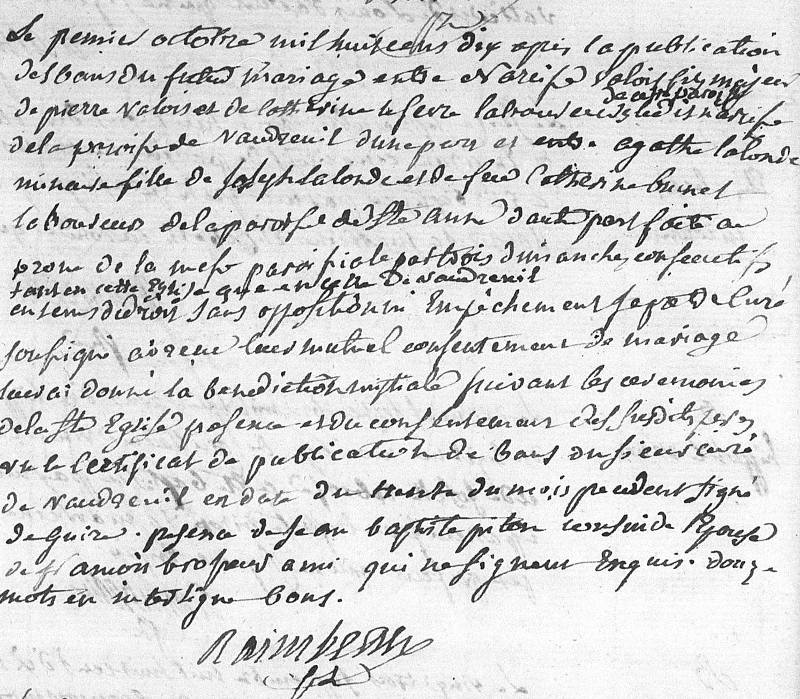 Le premier octobre mil huit cens dix après la publication
des bans du futur mariage entre Narcisse Valois fils majeur
de cette paroisse
de pierre Valois et de Catherine lefevre laboureur ledit narcisse
de la paroisse de Vaudreuil d'une part et entre agathe lalonde
mineure fille de Joseph Lalonde et de feu Catherine brunet
laboureur de la paroisse de Ste Anne d'autre part faite au
prone de la messe paroissiale par trois dimanches consecutifs
tant en cette Eglise que en celle de vaudreuil
en tems de droit sans opposition ni Empêchement je ptre Curé
soussigné ai recu leur mutuel consentement de mariage
leur ai donné la benediction nuptiale suivant les ceremonies
de la Ste Eglise presence et du consentement des susdits peres
vu le Certificat de publication de bans du sieur curé
de Vaudreuil en date du trente du mois precedent signé
deguire. presence de Jean baptiste pilon cousin de l'Epouse
de ami qui ne signent Enquis. douze
mots en interligne bons.